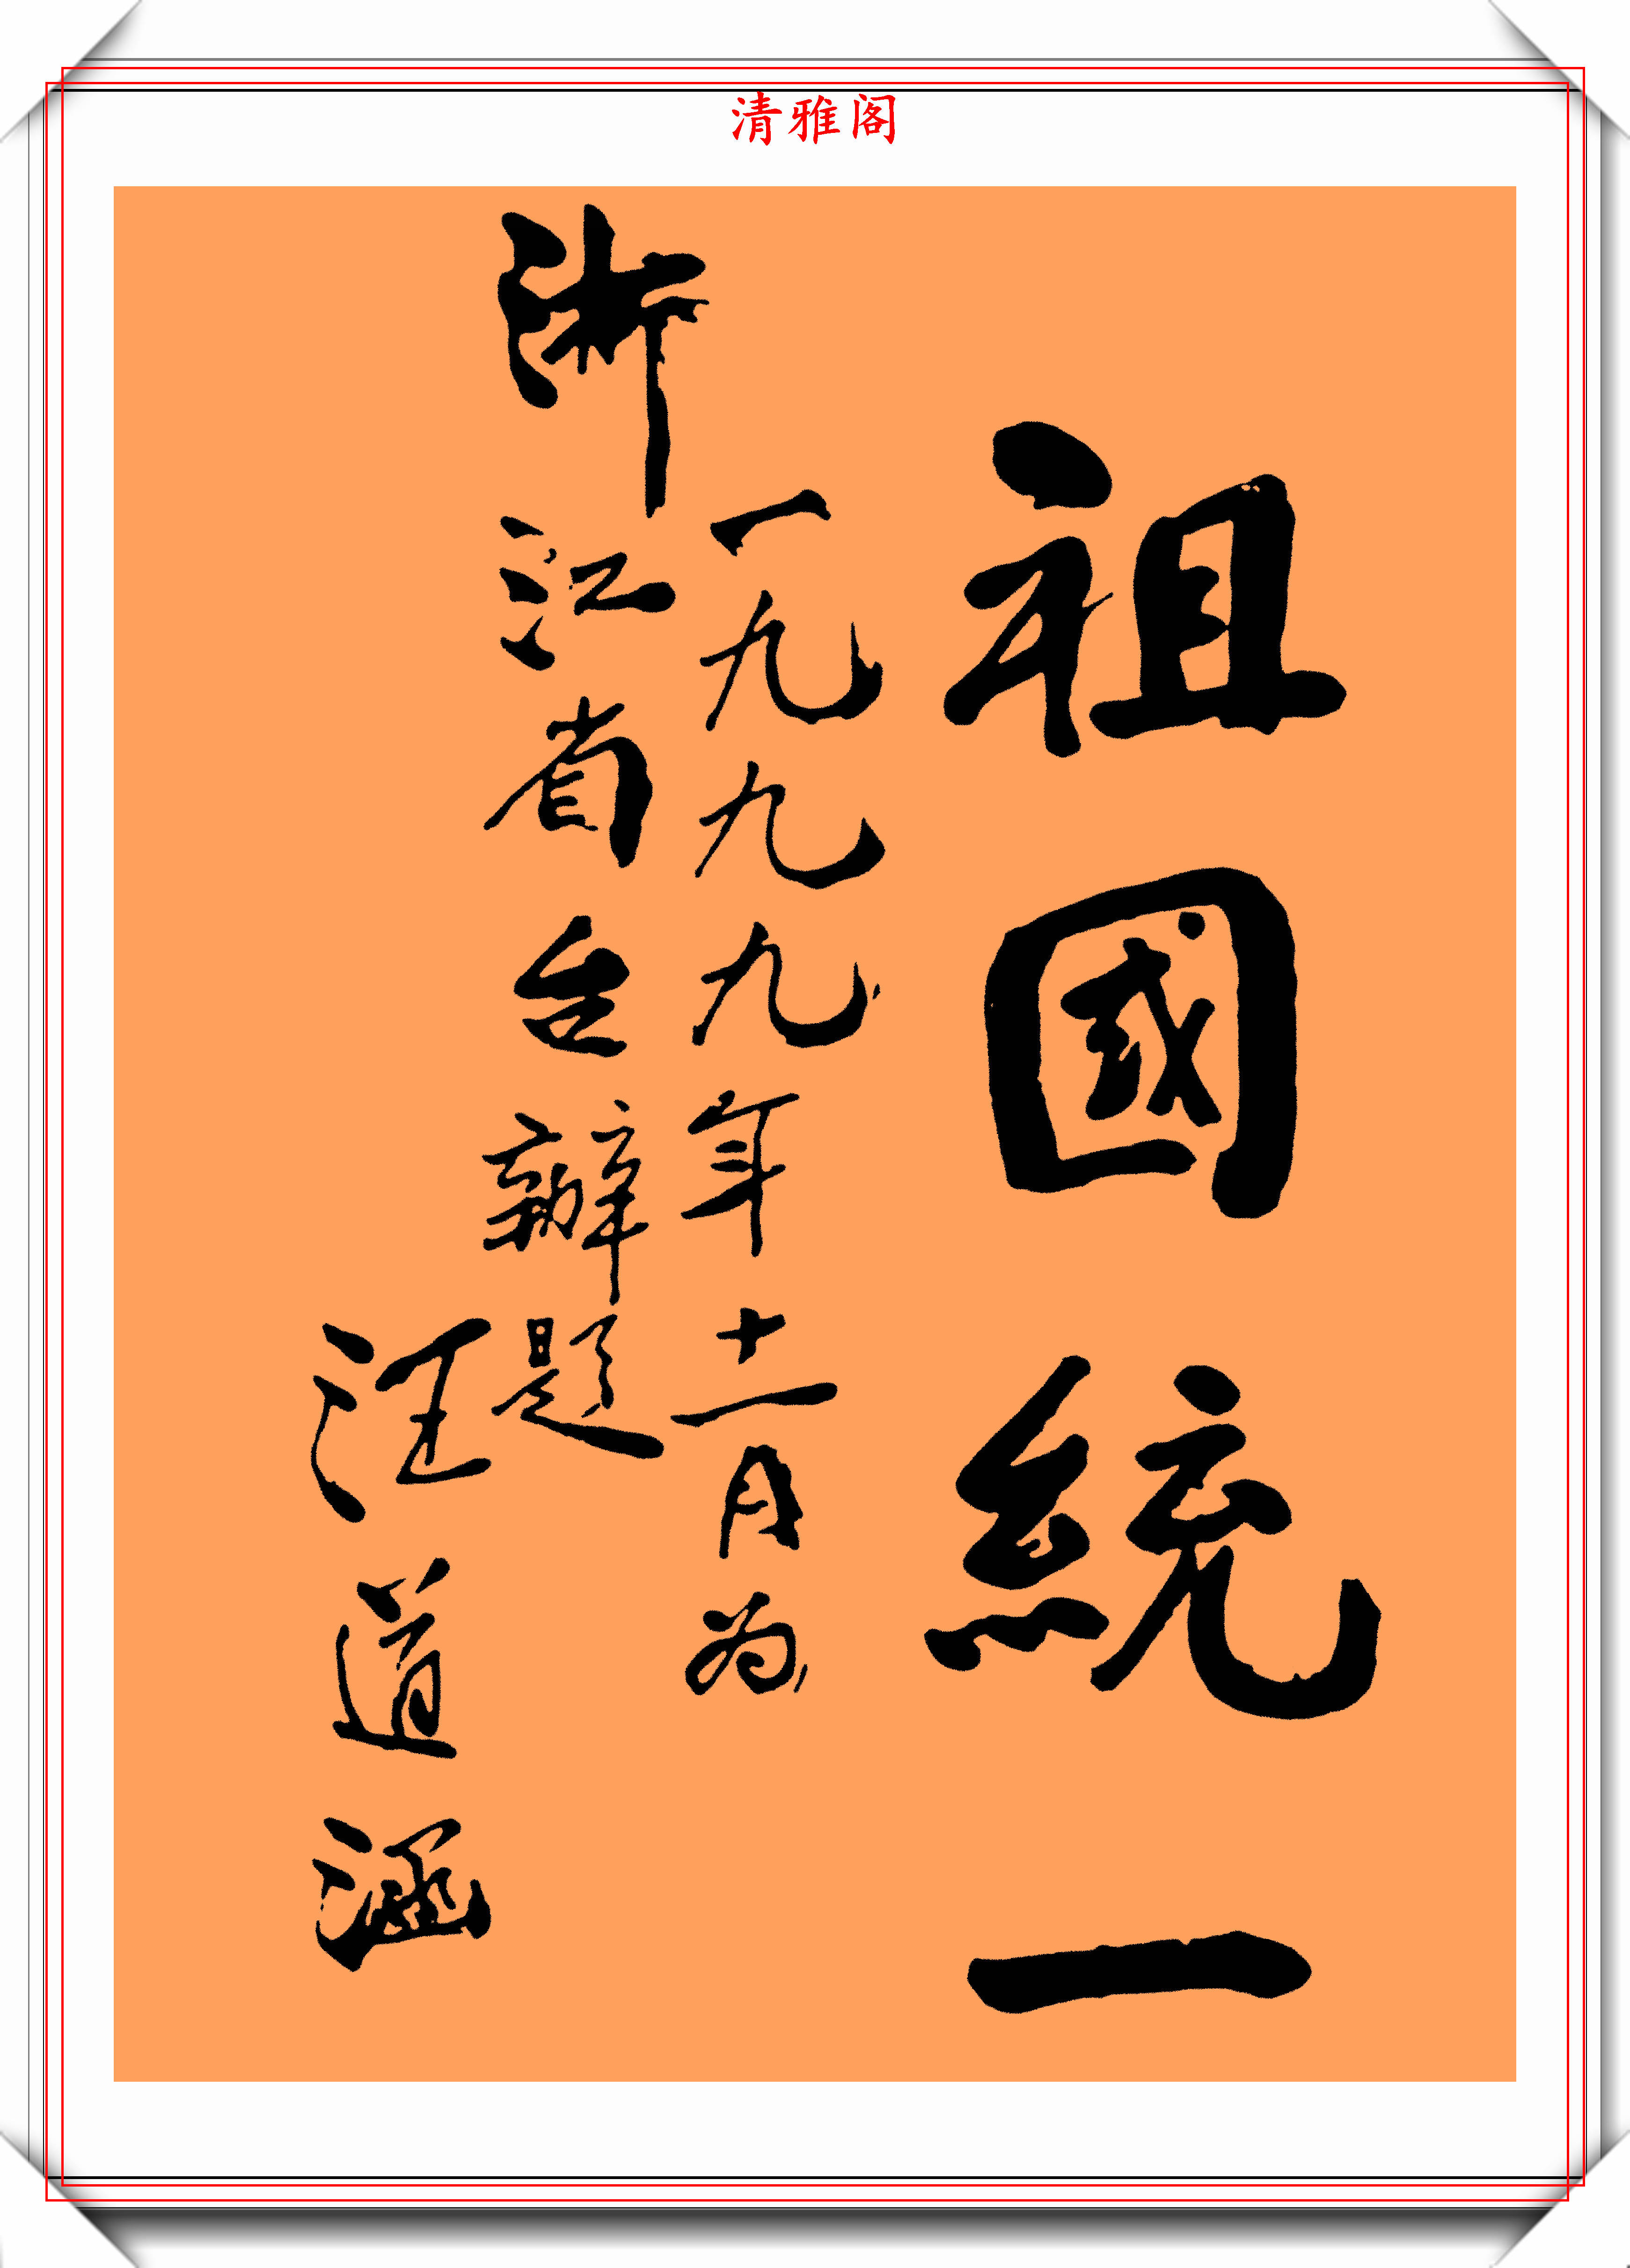 清雅阁
祖國統一
一九九九年十二月为
浙江省台辦題
汪道涵